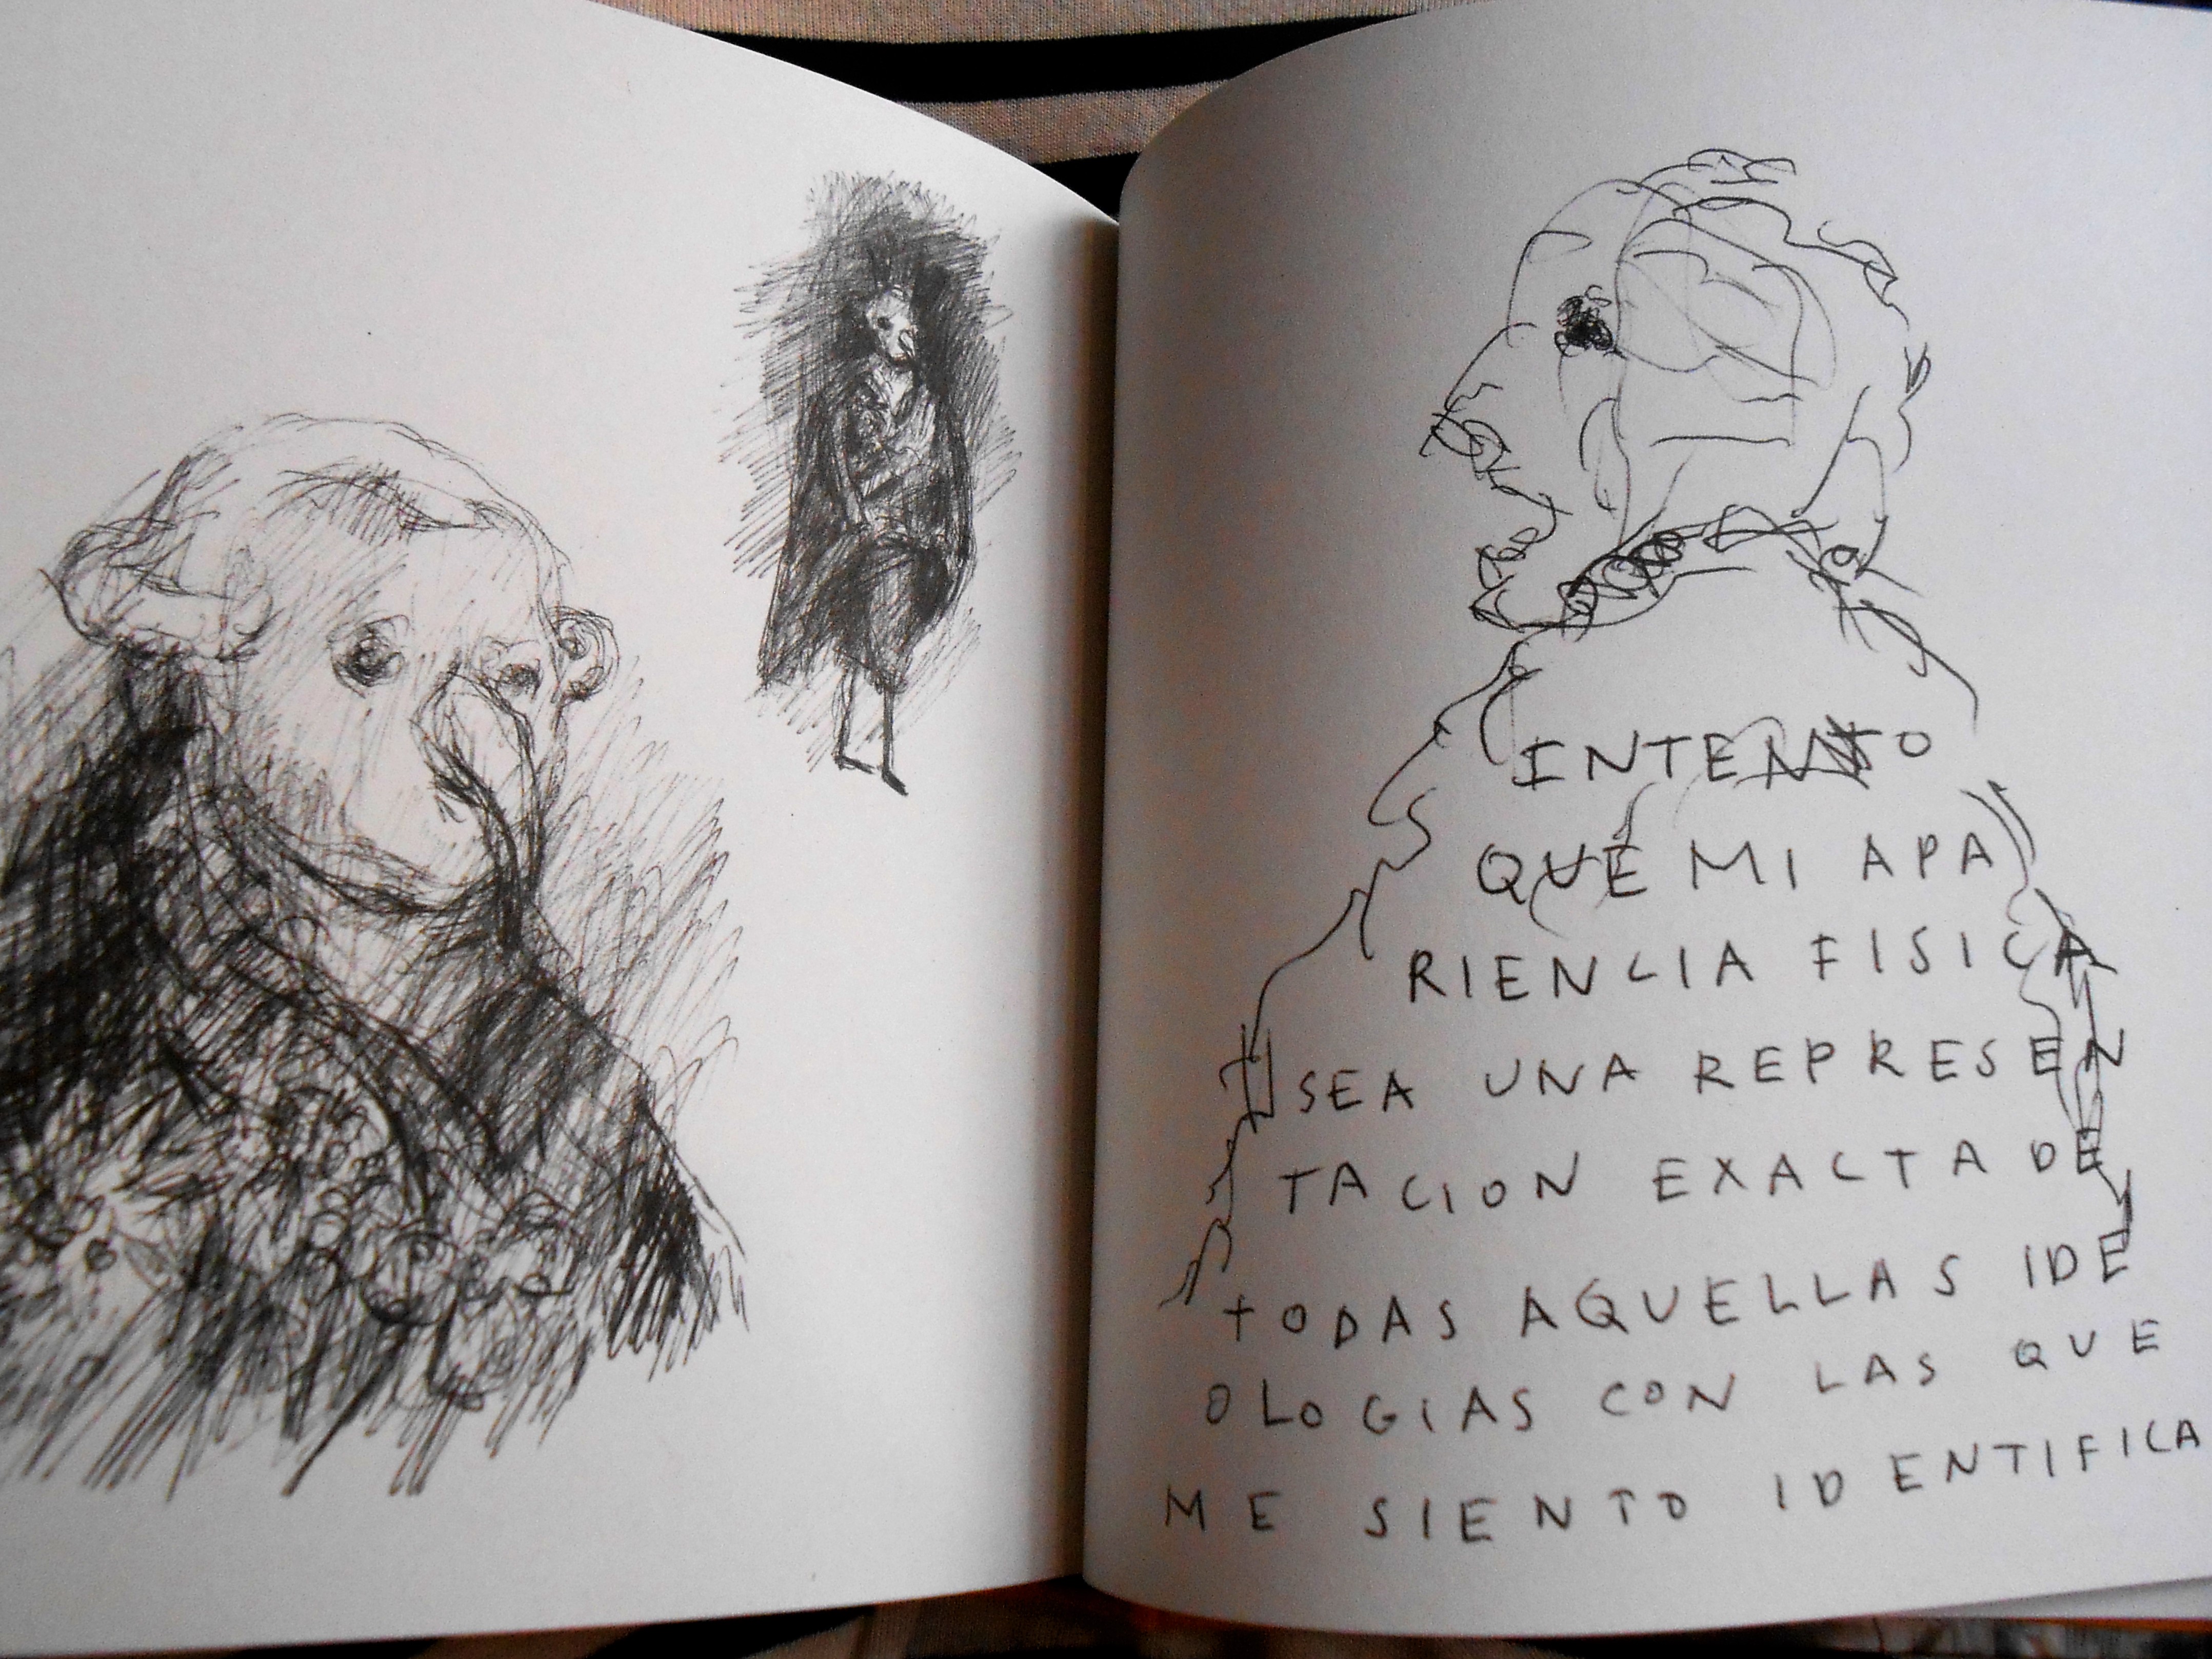 INTENTO
QUE MI APA
RIENCIA FISICA
SEA UNA REPRESEN
TACION EXACTA DE
TODAS AQUELLAS IDE
OLOGIAS CON LAS QUE
ME SIENTO IDENTIFICA